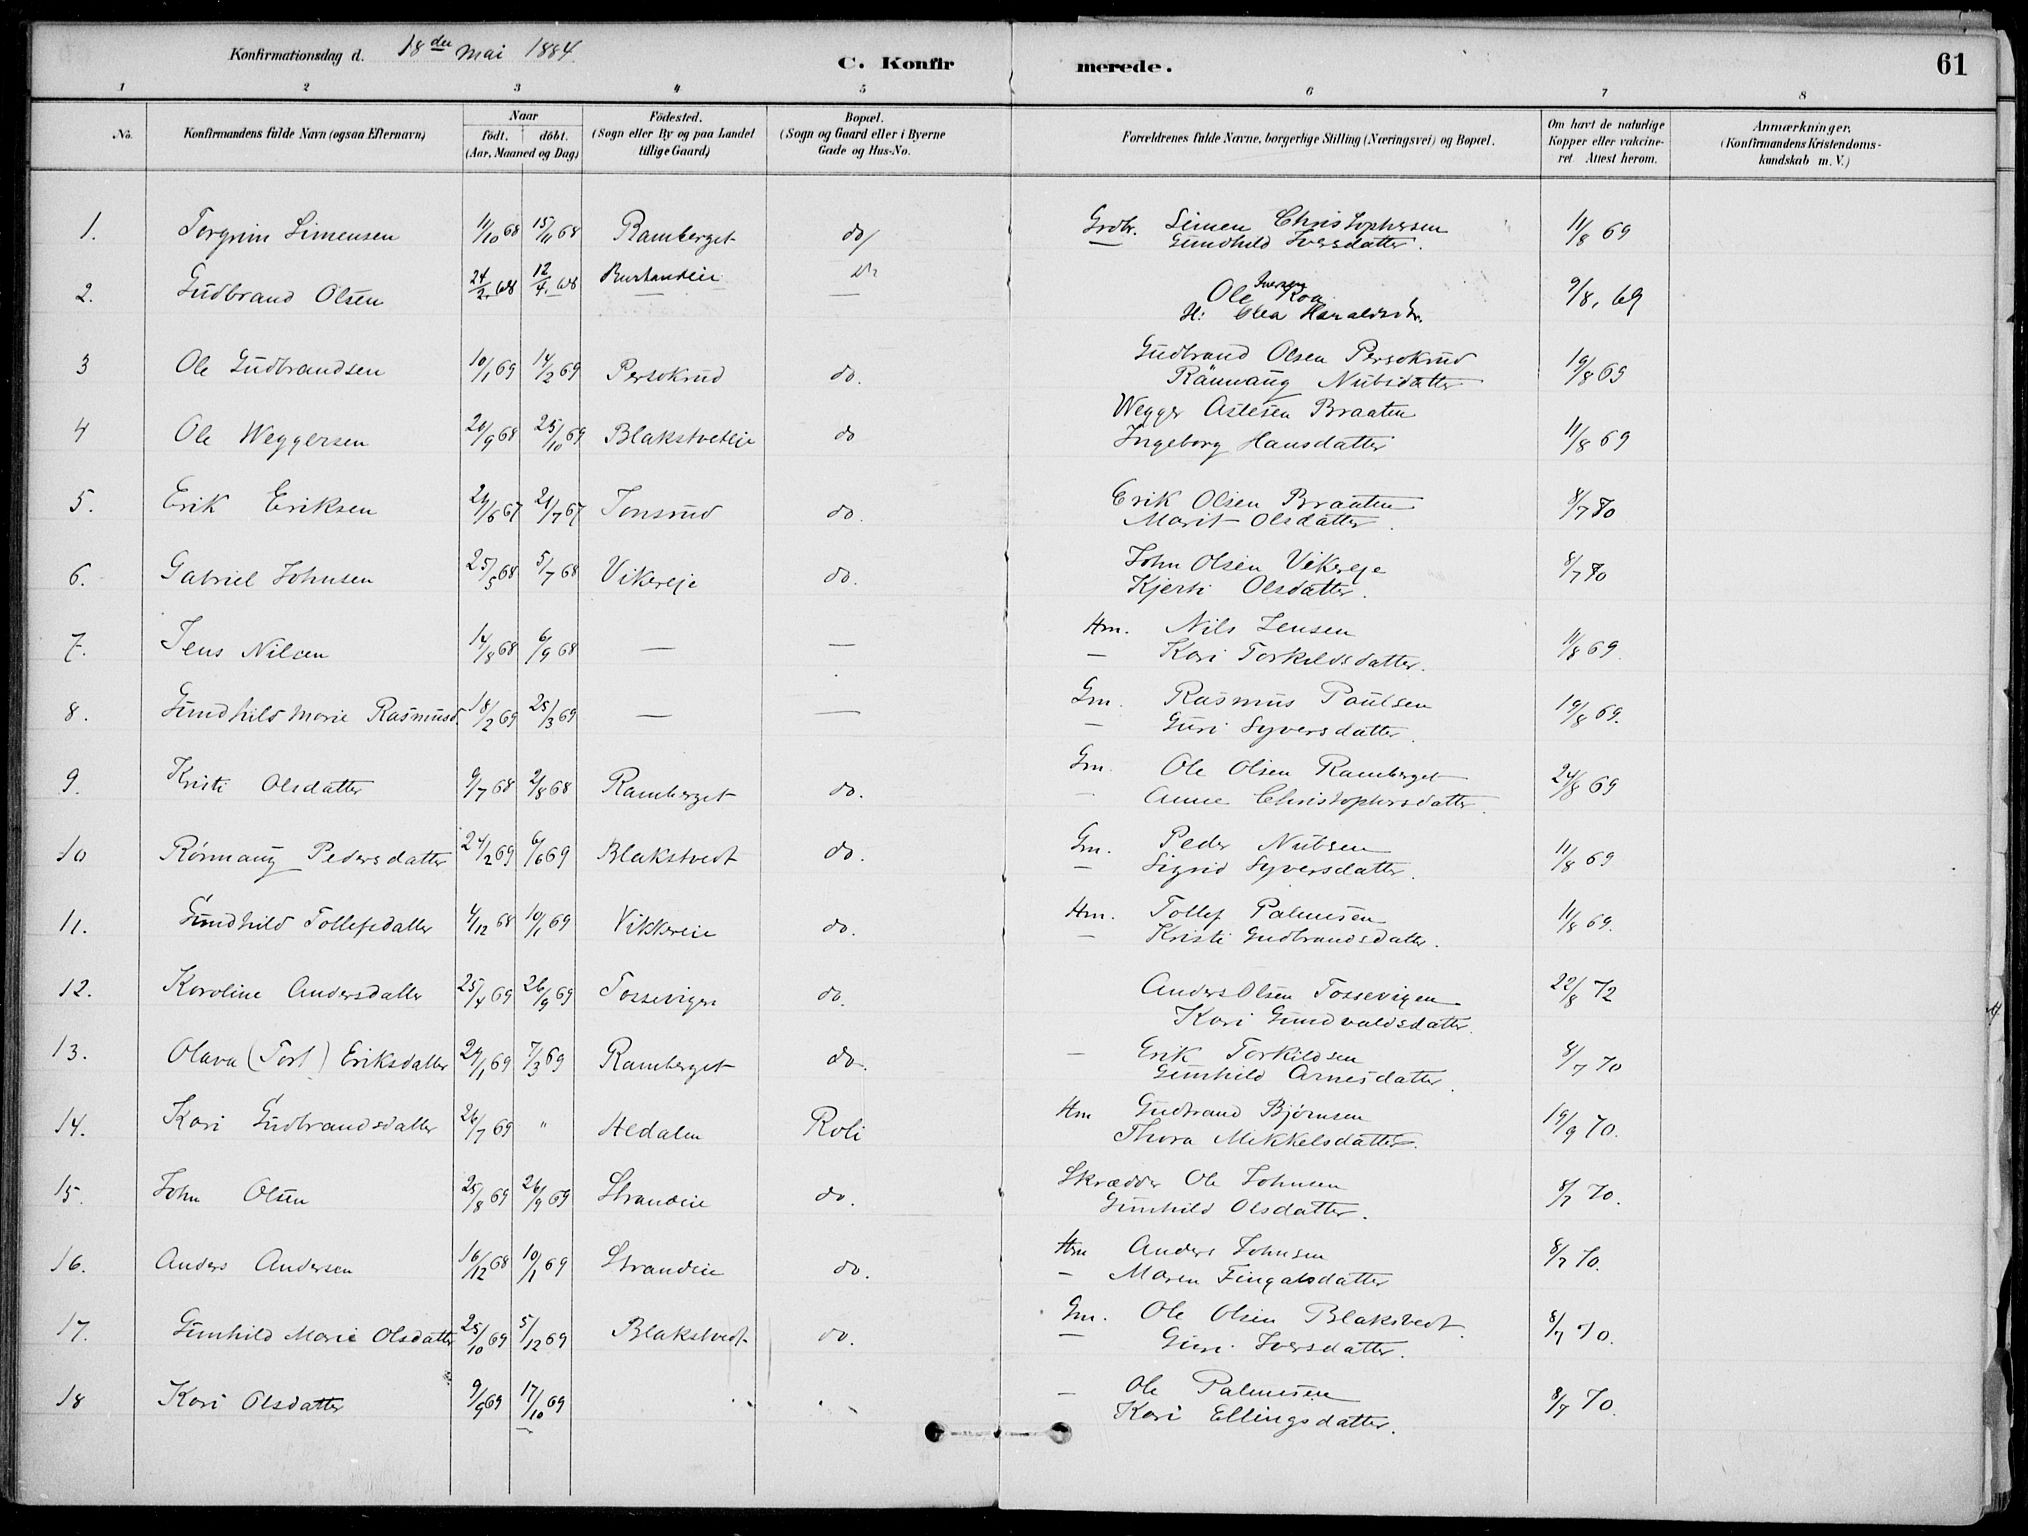 Konfirmationsdag d. 18de Mai 1884.
C. Konfirmerede.
61
1 2 3 4 5 6 7 8
No. Konfirmandens fulde Navn (ogsaa Efternavn) Naar födt. döbt. (Aar, Maaned og Dag) Födested. (Sogn eller By og paa Landet tillige Gaard) Bopæl. (Sogn og Gaard eller i Byerne Gade og Hus-No. Forældrenes fulde Navne, borgerlige Stilling (Næringsvei) og Bopæl. Om havt de naturlige Kopper eller vakcineret Attest herom. Anmærkninger. (Konfirmandens Kristendomskundskab m. V.)
1. Torgrim Simensen 11/10 68 15/11 68 Ramberget do Grdbr. Simen Christophersen 11/8 69
— Gundhild Iversdatter.
2. Gudbrand Olsen 24/2 68 12/4 68 — — Ole Iversen Roa 9/8 69
H: Olea Haraldsdr.
3 Ole Gudbrandsen 10/1 69 14/2 69 Persokrud do. Gudbrand Olsen Persokrud 19/8 69
Rännaug Nubsdatter
4 Ole Weggersen 20/9 68 25/10 69 Blakstveteie do Wegger Astesen Braaten 11/8 69
Ingeborg Hansdatter
5. Erik Eriksen 24/6 67 21/7 67 Tonsrud do. Erik Olsen Braaten 8/7 70
Marit Olsdatter.
6. Gabriel Johnsen 25/5 68 5/7 68 Vikereje do. John Olsen Vikereje 8/7 70
Kjersti Olsdatter.
7. Jens Nilsen 14/8 68 6/9 68 — — Hm. Nils Jensen 11/8 69.
— Kari Torkildsdatter.
8. Gundhild Marie Rasmusd. 18/2 69 25/3 69 — — Gm. Rasmus Paulsen 19/8 69.
— Guri Syversdatter.
9. Kristi Olsdatter 9/7 68 2/8 68 Ramberget do. Gm. Ole Olsen Ramberget 24/8 69
— Anne Christophersdatter.
10 Rönnaug Pedersdatter 24/2 69 6/6 69 Blakstvedt do. Gm. Peder Nubsen 11/8 69
— Sigrid Syversdatter.
11. Gundhild Tollefsdatter 4/12 68 10/1 69 Vikkereie do. Hm. Tollef Palmesen 11/8 69.
— Kristi Gudbrandsdatter.
12. Karoline Andersdatter 25/4 69 26/9 69 Tossevigen do. Anders Olsen Tossevigen 22/8 72
Kari Gundvaldsdatter.
13. Olava (Torl) Eriksdatter 24/1 69 7/3 69 Ramberget do. — Erik Torkildsen 8/7 70
Gunhild Arnesdatter.
14. Kari Gudbrandsdatter 26/7 69 " Hedalen Roli Hm Gudbrand Björnsen 19/9 70.
Thora Mikkelsdatter.
15. John Olsen 25/8 69 26/9 69 Strandeie do. Skrædder Ole Johnsen 8/7 70.
Gunhild Olsdatter.
16. Anders Andersen 16/12 68 10/1 69 Strandeie do. Hm Anders Johnsen 8/7 70.
— Maren Fingalsdatter
17. Gunhild Marie Olsdatter 25/10 69 5/12 69 Blakstvedt do. Gm. Ole Olsen Blakstvedt. 8/7 70.
— Guri Iversdatter.
18 Kari Olsdatter 9/9 69 17/10 69 — Ole Palmesen 8/7 70.
Kari Ellingsdatter.